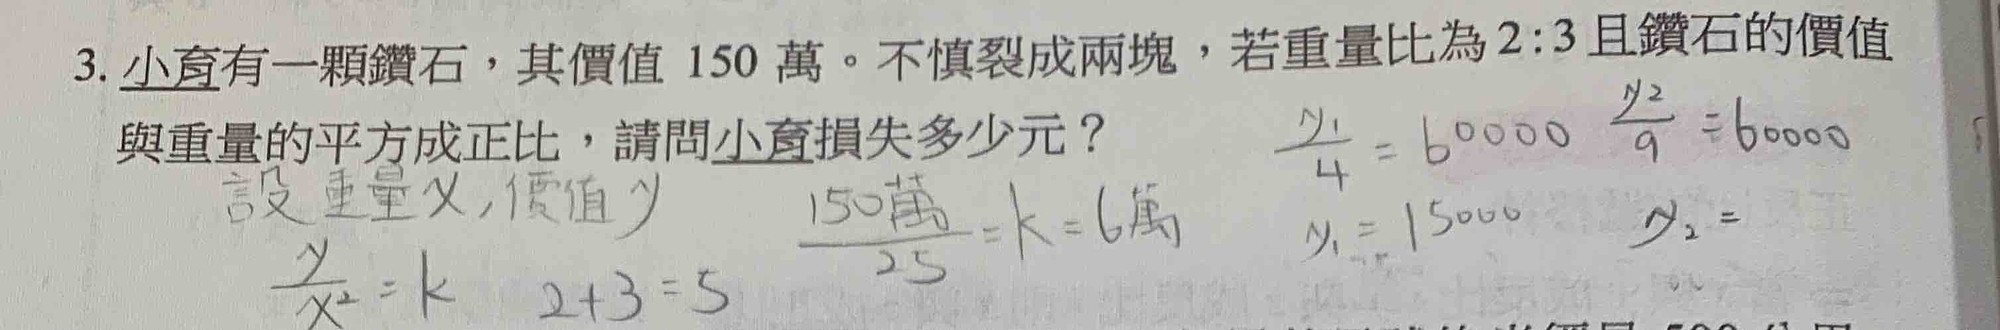 3. 小育有一顆鑽石，其價值 150 萬。不慎裂成兩塊，若重量比為 2:3 且鑽石的價值
與重量的平方成正比，請問小育損失多少元？
設重量x,價值y
y/x² = k 2+3=5
150萬/25 = k = 6萬
y₁/4 = 60000 y₂/9 = 60000
y₁ = 15000 y₂ =